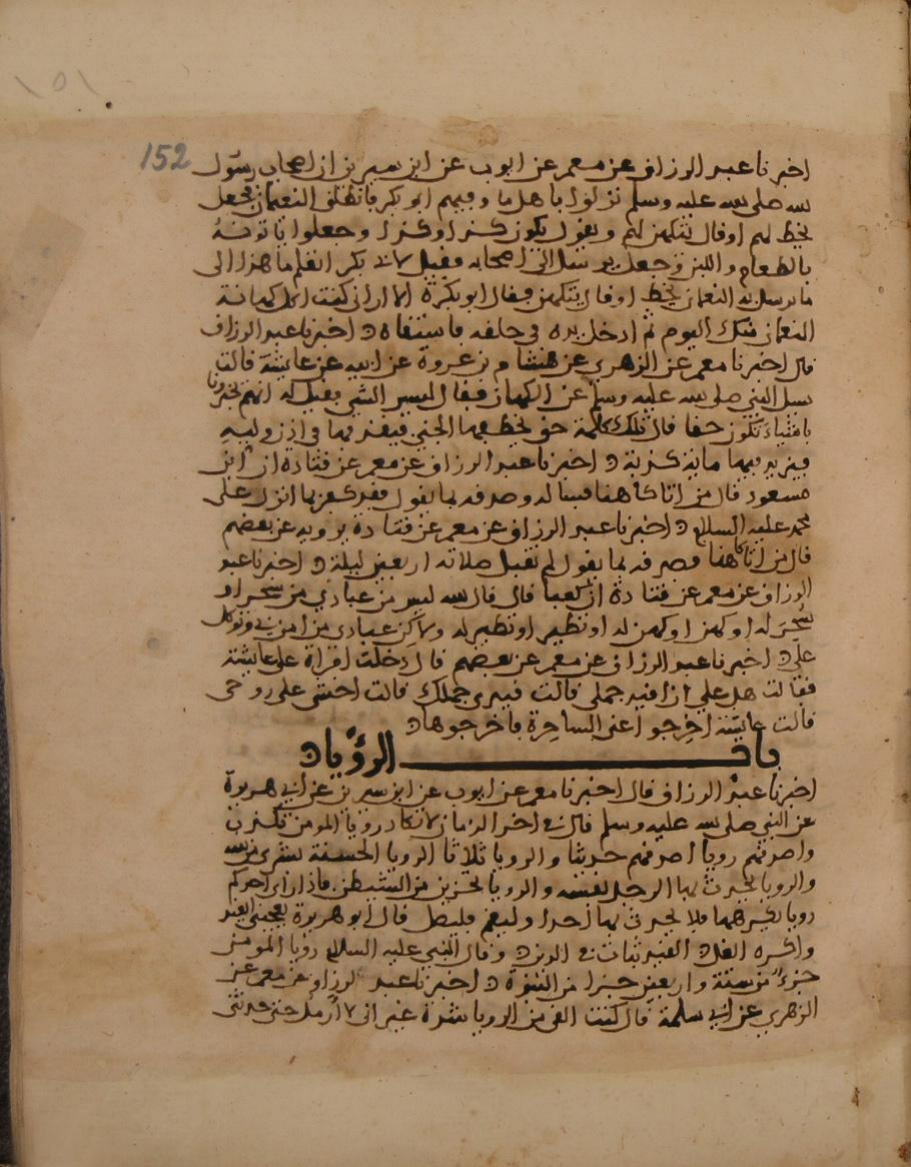 ١٥١
152
اخبرنا عبد الرزاق عن معمر عن ايوب عن ابن سيرين ان اصحاب رسول
الله صلى الله عليه وسلم نزلوا باهل ما وفيهم ابو بكر فانطلق النعمان فجعل
يخط لهم او قال يتكهن لهم ويقول يكون كذا وكذا وجعلوا ياتونه
بالطعام واللبن وجعل يرسل الى اصحابه فقيل لابي بكر اتعلم ما هذا الى
ما يرسل به النعمان يخط او قال يتكهن فقال ابو بكر الا اراني كنت اكل كهانة
النعمان منذ اليوم ثم ادخل يده في حلقه فاستقاه اخبرنا عبد الرزاق
قال اخبرنا معمر عن الزهري عن هشام بن عروة عن ابيه عن عايشة قالت
سيل النبي صلى الله عليه وسلم عن الكهان فقال ليس الشي فقيل له انهم يخبرونا
باشياء تكون حقا قال تلك كلمة حق يخطفها الجني فيقذفها في اذن وليه
فيزيد فيها ماية كذبة اخبرنا عبد الرزاق عن معمر عن قتادة ان ابن
مسعود قال من اتا كاهنا فسا له وصدقه بما يقول فقد كفر بما انزل على
محمد عليه السلام اخبرنا عبد الرزاق عن معمر عن قتادة يرويه عن بعضهم
قال من اتا كاهنا فصدقه بما يقول لم تقبل صلاته اربعين ليلة اخبرنا عبد
الرزاق عن معمر عن قتادة ان كعبا قال قال الله ليس من عبادي من سحر او
سُحر له او كهن او كهن له او تطير او تطير له ولاكن عبادي من امن بي وتوكل
علي اخبرنا عبد الرزاق عن معمر عن بعضهم قال دخلت امراة على عايشة
فقالت هل علي ان اقيد جملي قالت قيدي جملك قالت احبس على زوجي
قالت عايشة اخرجوا عني الساحرة فاخرجوها
باب الرؤيا
اخبرنا عبد الرزاق قال اخبرنا معمر عن ايوب عن ابن سيرين عن ابي هريرة
عن النبي صلى الله عليه وسلم قال في اخر الزمان لا تكاد رويا المومن تكذب
واصدقهم رويا اصدقهم حديثا والرويا ثلاثا الرويا الحسنة بشرى من الله
والرويا يحدث بها الرجل نفسه والرويا تحزين من الشيطن فاذا راى احدكم
رويا يكرهها فلا يحدث بها احدا وليقم فليصل قال ابو هريرة يعجبني القيد
واكره الغل القيد ثبات في الدين وقال النبي عليه السلام رؤيا المومن
جزء من ستة واربعين جزءا من النبوة اخبرنا عبد الرزاق عن معمر عن
الزهري عن ابي سلمة قال كنت القى من الرويا شدة غير اني لا ازمل حتى حدثني